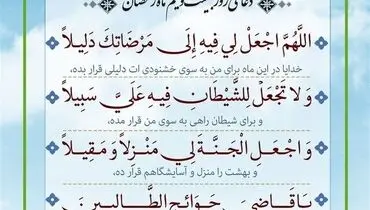 دعای روز بیست و یکم ماه رمضان
اللَّهُمَّ اجْعَلْ لِي فِيهِ إِلَى مَرْضَاتِكَ دَلِيلاً
خدایا در این ماه برای من به سوی خشنودی ات دلیلی قرار بده،
وَ لَا تَجْعَلْ لِلشَّيْطَانِ فِيهِ عَلَيَّ سَبِيلاً
و برای شیطان راهی به سوی من قرار مده،
وَ اجْعَلِ الْجَنَّةَ لِي مَنْزِلاً وَ مَقِيلاً
و بهشت را منزل و آسایشگاهم قرار ده،
يَا قَاضِيَ حَوَائِجِ الطَّالِبِينَ